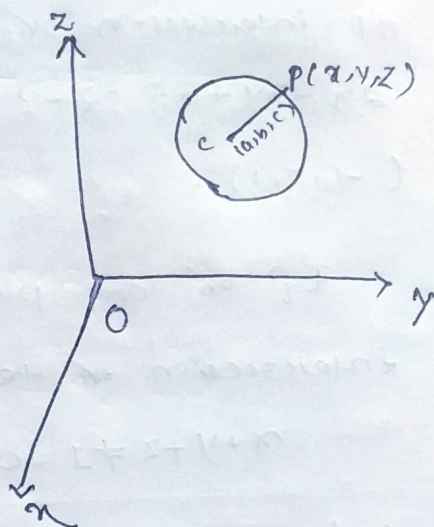 Z
P(x,y,z)
C
(a,b,c)
y
O
x